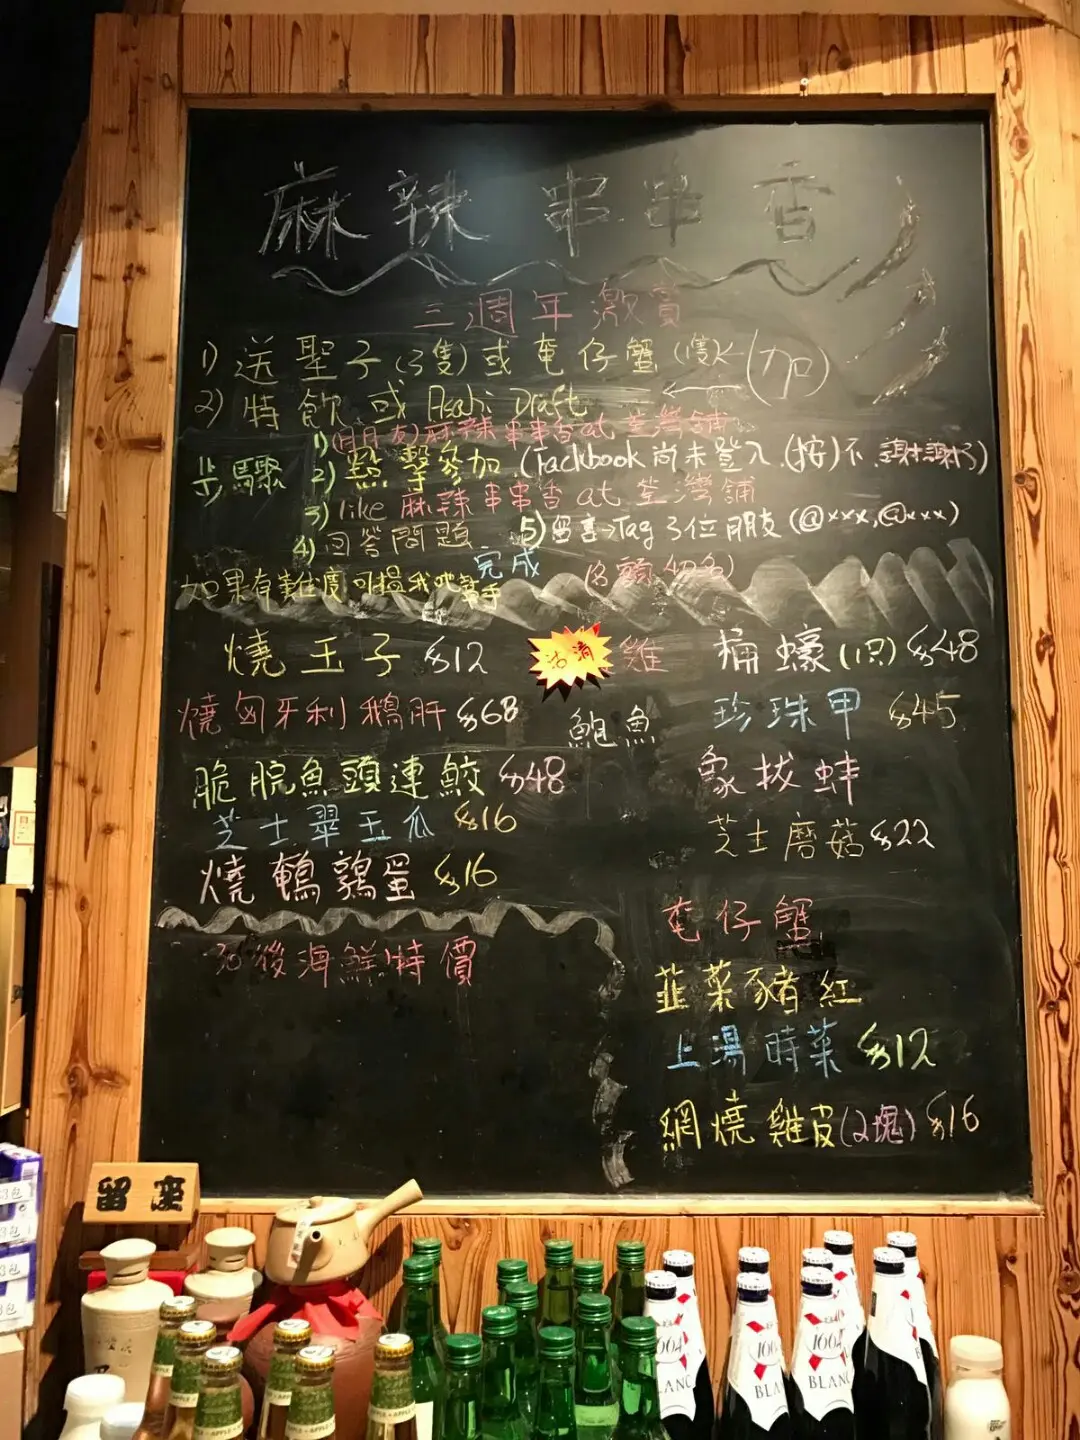 麻辣串串香
三週年激賞
1) 送聖子(3隻)或奄仔蟹(1隻)
(加)
2) 特飲或 Asahi Draft
步驟
1) (朋友)麻辣串串香at荃灣舖
2) 點擊參加.(Fackbook尚未登入.(按)不.謝謝)
3) like 麻辣串串香at荃灣舖
4) 回答問題 5) 留言→Tag 3位朋友 (@xxx,@xxx)
完成 (名額40名)
如果有難度可搵我哋幫手
燒玉子 $12
沽清
雞
桶蠔(1只) $48
燒匈牙利鵝肝 $68
鮑魚
珍珠甲 $45
脆脘魚頭連鮫 $48
象拔蚌
芝士翠玉瓜 $16
芝士磨菇 $22
燒鵪鶉蛋 $16
奄仔蟹
30後海鮮特價
韮菜豬紅
上湯時菜 $12
網燒雞皮(2塊) $16
留座
1664
BLANC
1664
BLANC